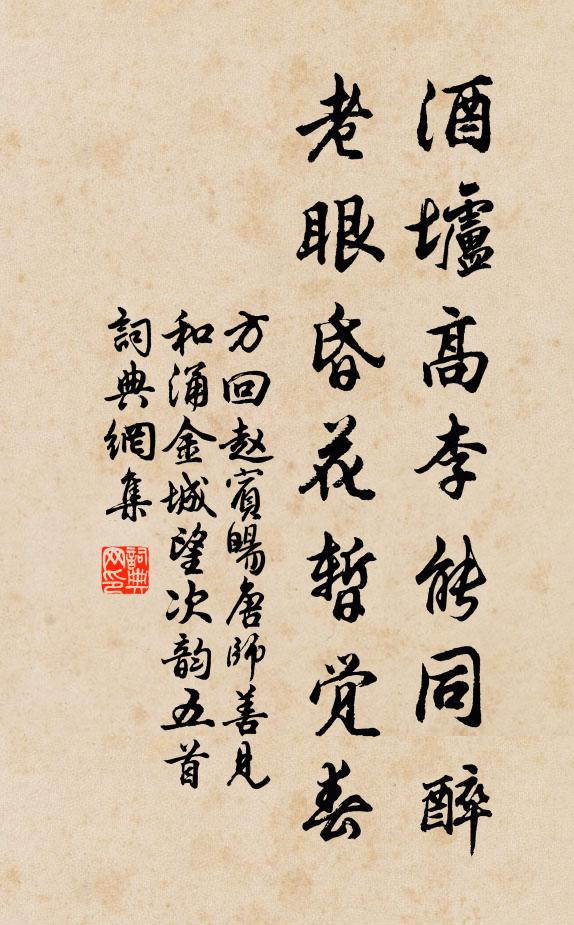 酒壚高李能同醉
老眼昏花暫觉春
方回赵賓暘唐師善見
和涌金城望次韵五首
詞典網集
詞典网印